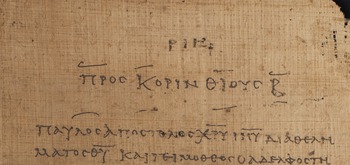 ΠΡΟϹ ΚΟΡΙΝΘΙΟΥϹ Β̅
ΠΑΥΛΟϹ ΑΠΟϹΤΟΛΟϹ Χ̅Ρ̅Υ̅ Ι̅Η̅Υ̅ ΔΙΑ ΘΕΛΗ
ΜΑΤΟϹ Θ̅Υ̅ ΚΑΙ ΤΕΙΜΟΘΕΟϹ Ο ΑΔΕΛΦΟϹ ΤΗ